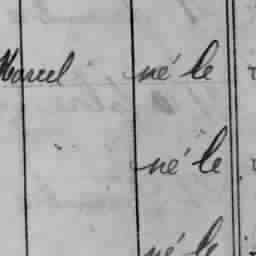 Marcel né le
né le
né le